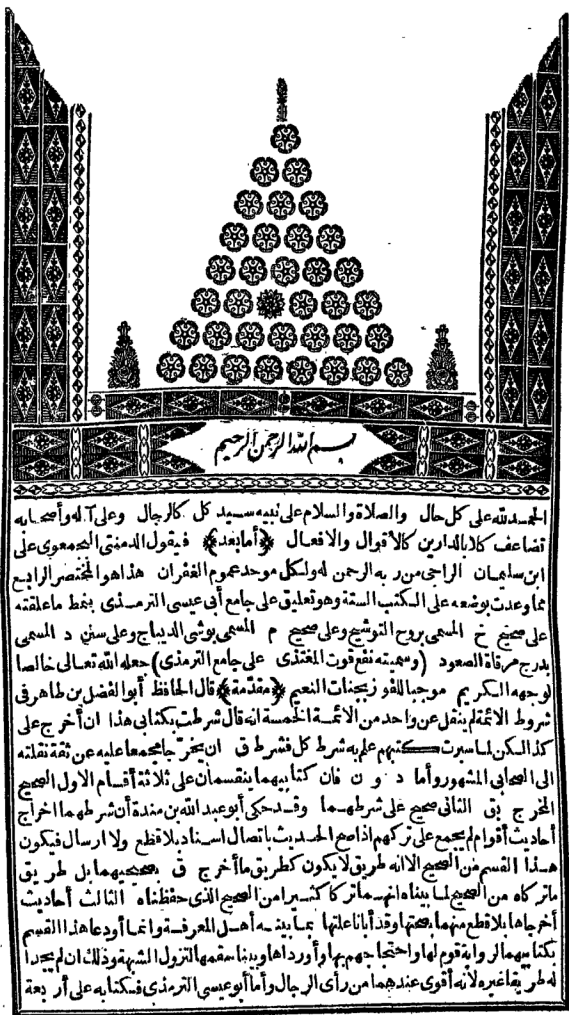 بسم الله الرحمن الرحيم
الحمد لله على كل حال والصلاة والسلام على نبيه سيد كل كالرجال وعلى آله وأصحابه
تضاعف كلا بالدارين كالأقوال والافعال ﴿أما بعد﴾ فيقول الدمنتى البجمعوى على
ابن سليمان الراجى من ربه الرحمن له ولكل موحد عموم الغفران هذا هو المختصر الرابع
مما وعدت بوضعه على الكتب الستة وهو تعليق على جامع أبى عيسى الترمذى بنمط ما علقته
على صحيح خ المسمى بروح التوشيح وعلى صحيح م المسمى بوشى الديباج وعلى سنن د المسمى
بدرج مرقاة الصعود (وسميته نفع قوت المغتذى على جامع الترمذى) جعله الله تعالى خالصا
لوجهه الكريم موجبا للفوز بجنات النعيم ﴿مقدمة﴾ قال الحافظ أبو الفضل بن طاهر فى
شروط الأئمة لم ينقل عن واحد من الأئمة الخمسة انه قال شرطت بكتابى هذا ان أخرج على
كذا لكن لما سبرت كتبهم علم به شرط كل فشرط ق ان يخرجا مجمعا عليه عن ثقة نقلته
الى الصحابى المشهور وأما د و ن فان كتابيهما ينقسمان على ثلاثة أقسام الاول الصحيح
المخرج بق الثانى صحيح على شرطهما وقد حكى أبو عبد الله بن مندة أن شرطهما اخراج
أحاديث أقوام لم يجمع على تركهم اذا صح الحديث باتصال اسناد بلا قطع ولا ارسال فيكون
هذا القسم من الصحيح الا انه طريق لا يكون كطريق ما أخرج ق بصحيحيهما بل طريق
ما تركاه من الصحيح لما بيناه انهما تركا كثيرا من الصحيح الذى حفظناه الثالث أحاديث
أخرجاها بلا قطع منهما بصحتها وقد أبانا علتها بما يبنه أهل المعرفة وانما أودعا هذا القسم
بكتابيهما لرواية قوم لها واحتجاجهم بها وأورداها وبينا سقمها لتزول الشبهة وذلك ان لم يجدا
له طريقا غيره لأنه أقوى عندهما من رأى الرجال وأما أبو عيسى الترمذى فكتابه على أربعة